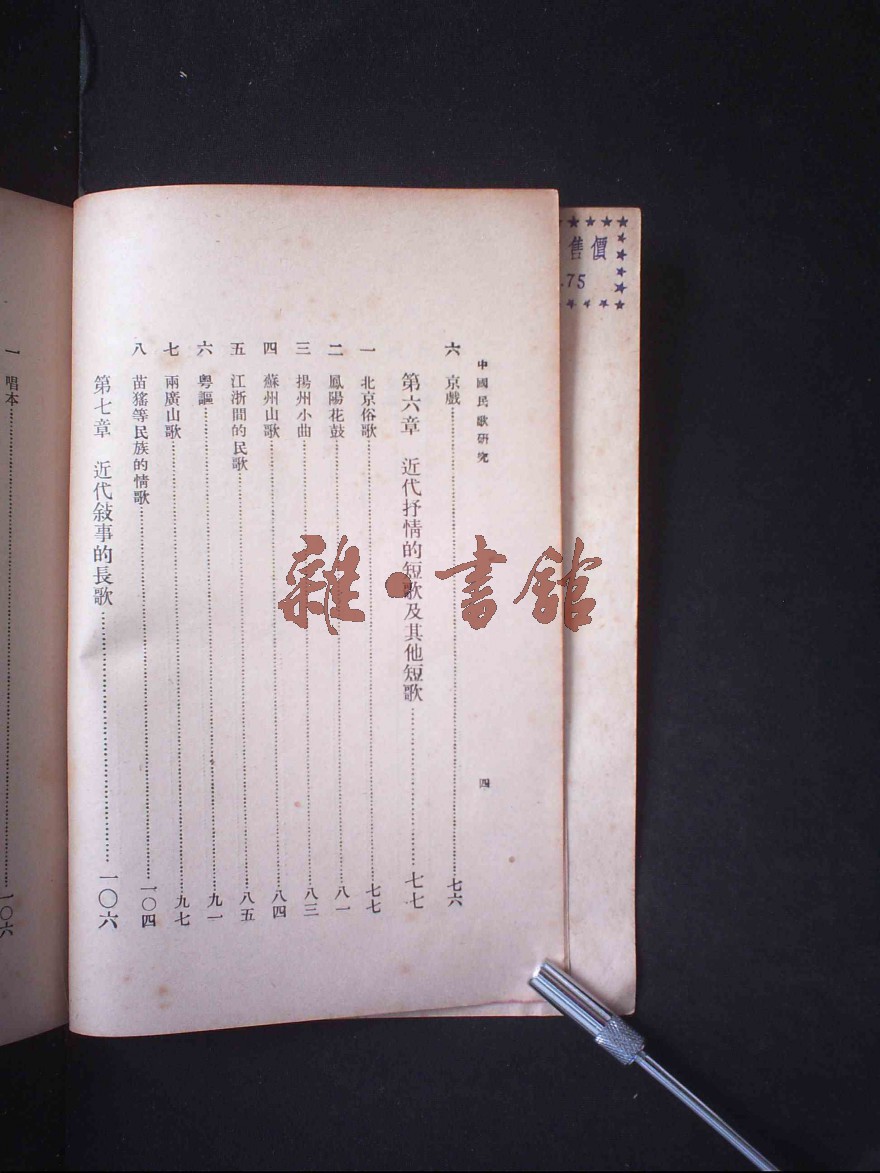 中國民歌研究
四
六 京戲……七六
第六章 近代抒情的短歌及其他短歌……七七
一 北京俗歌……七七
二 鳳陽花鼓……八一
三 揚州小曲……八三
四 蘇州山歌……八四
五 江浙間的民歌……八五
六 粵謳……九一
七 兩廣山歌……九七
八 苗猺等民族的情歌……一〇四
第七章 近代敍事的長歌……一〇六
一 唱本……一〇六
售價
.75
雜·書館